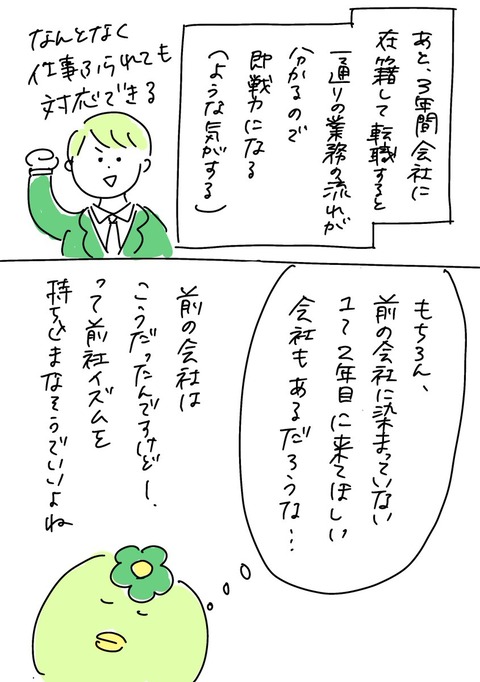 あと、3年間会社に
在籍して転職すると
一通りの業務の流れが
分かるので
即戦力になる
(ような気がする)
なんとなく
仕事ふられても
対応できる
もちろん、
前の会社に染まっていない
1〜2年目に来てほしい
会社もあるだろうな…
前の会社は
こうだったんですけどー、
って前社イズムを
持ち込まなそうでいいよね